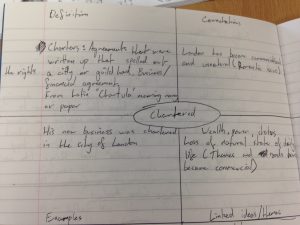 Definition
Connotations
Charters: Agreements that were
written up that spelled out
the rights
a city or guild had. Business/
financial agreement.
From Latin "Chartula" meaning
or paper
London has become commercialised
and unnatural
Chartered
His new business was chartered
in the city of London
Wealth, power,
Loss of natural state of
life (Thames and roads
become commercial)
Examples
Linked ideas/themes